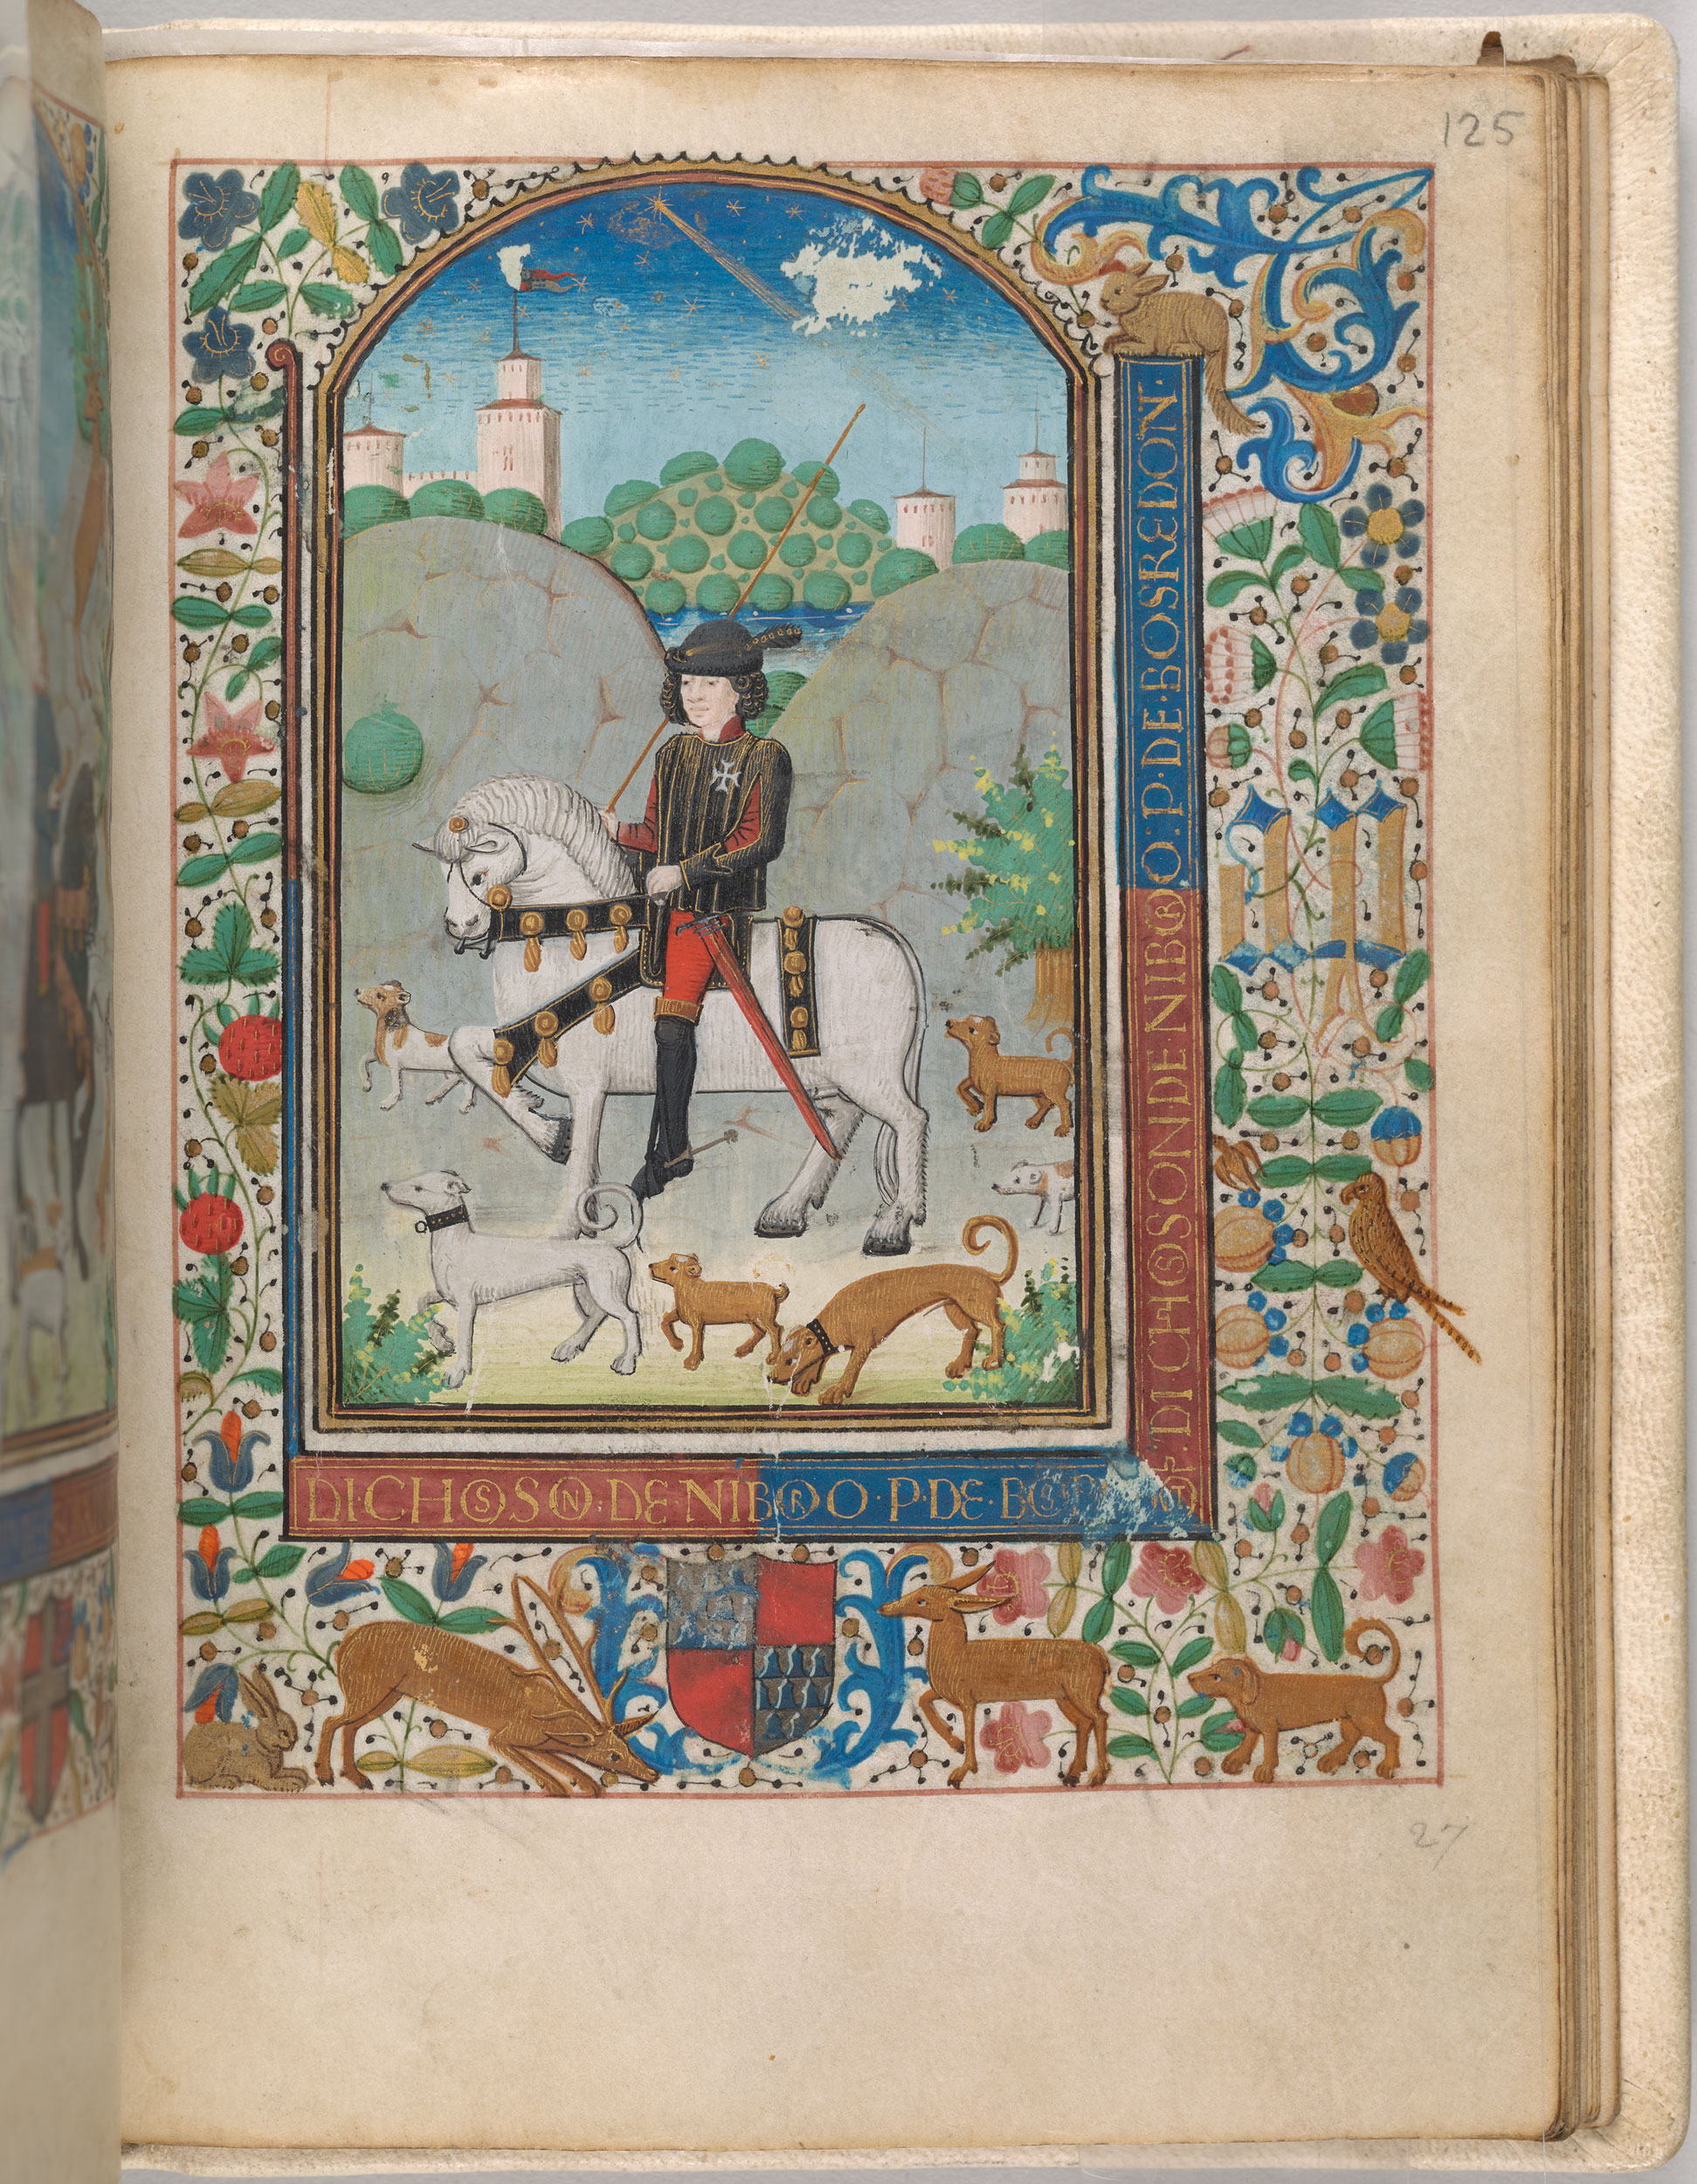 125
DI CHOSON DE NIBRO O. P. DE BOSREDON.
DI CHOSSON. DE NIBRO O. P. DE.
27